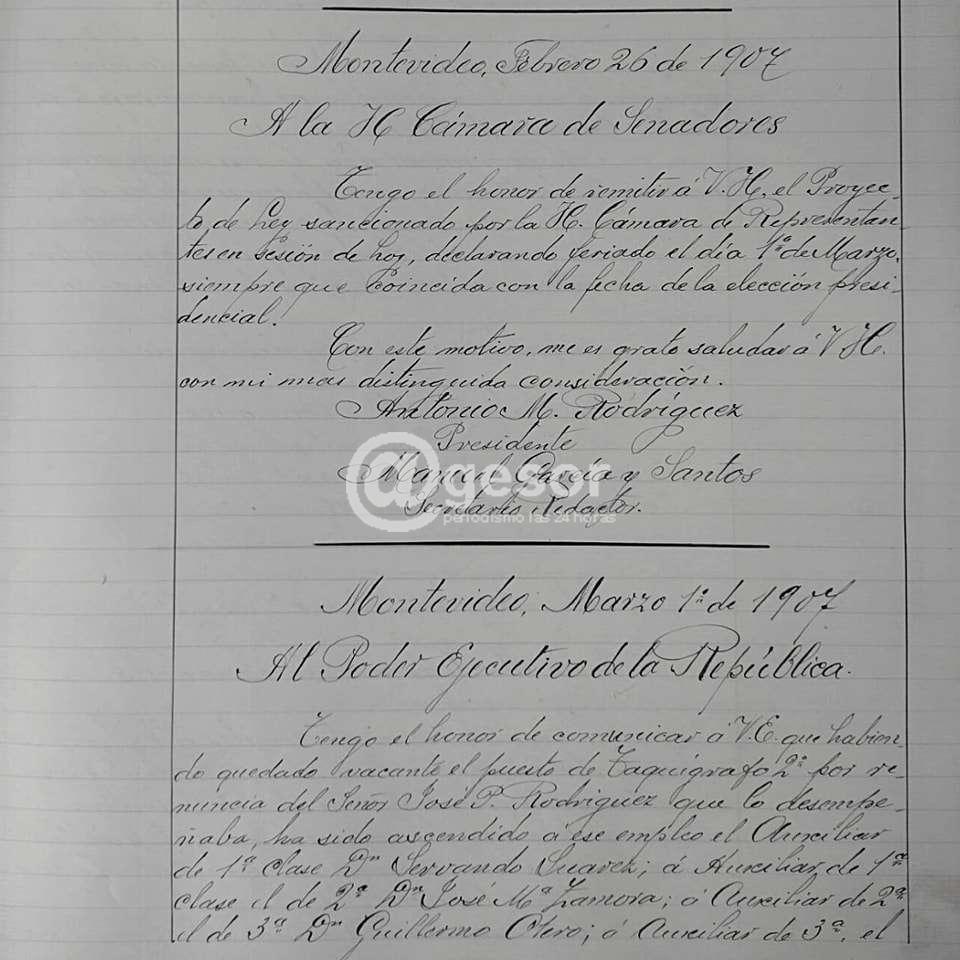 Montevideo, Febrero 26 de 1907
A la H Cámara de Senadores
Tengo el honor de remitir á V.H. el Proyec-
to de Ley sancionado por la H. Cámara de Representan-
tes en sesión de hoy, declarando feriado el día 1º de Marzo,
siempre que coincida con la fecha de la elección presi-
dencial.
Con este motivo, me es grato saludar á V.H.
con mi mas distinguida consideración.
Antonio M. Rodríguez
Presidente
Manuel García y Santos
Secretario Redactor.
@gesor
periodismo las 24 horas
Montevideo, Marzo 1º de 1907
Al Poder Ejecutivo de la República.
Tengo el honor de comunicar á V.E. que habien-
do quedado vacante el puesto de Taquígrafo 2º por re-
nuncia del Señor José P. Rodriguez que lo desempe-
ñaba, ha sido ascendido á ese empleo el Auxiliar
de 1ª clase Dn Servando Suarez; á Auxiliar de 1ª
clase el de 2ª Dn José Mª Zamora; á Auxiliar de 2ª
el de 3ª Dn Guillermo Otero; á Auxiliar de 3ª, el